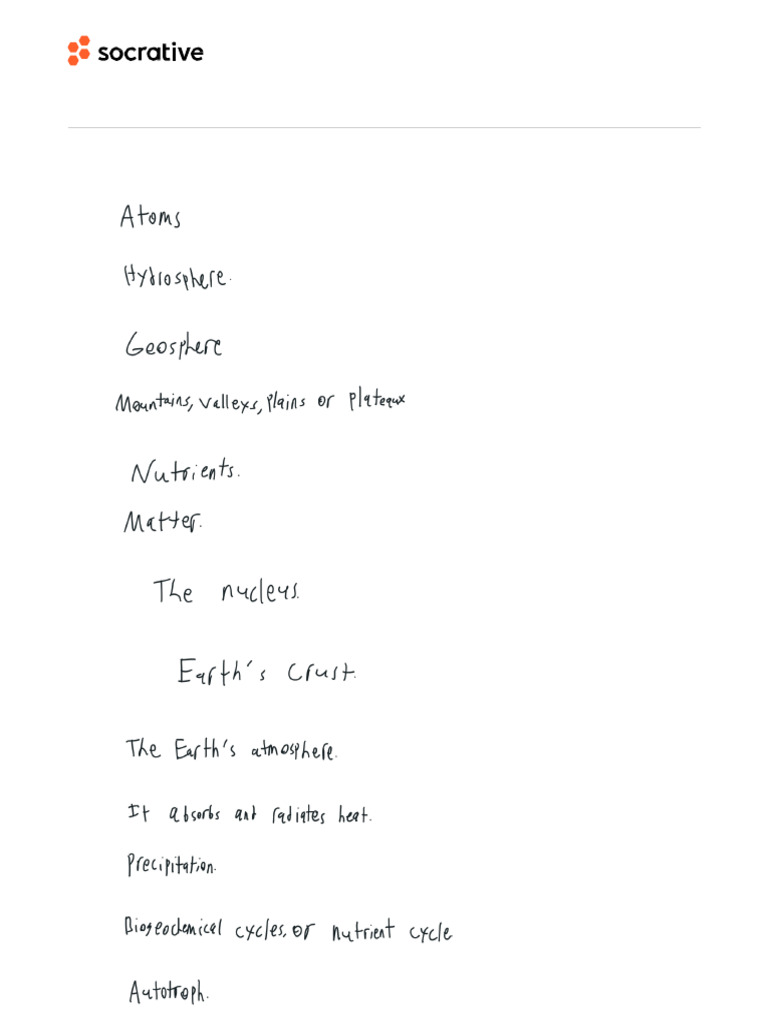 socrative
Atoms
Hydrosphere.
Geosphere
Mountains, valleys, plains or plateaux
Nutrients.
Matter.
The nucleus.
Earth's crust.
The Earth's atmosphere.
It absorbs and radiates heat.
Precipitation.
Biogeochemical cycles, or nutrient cycle
Autotroph.